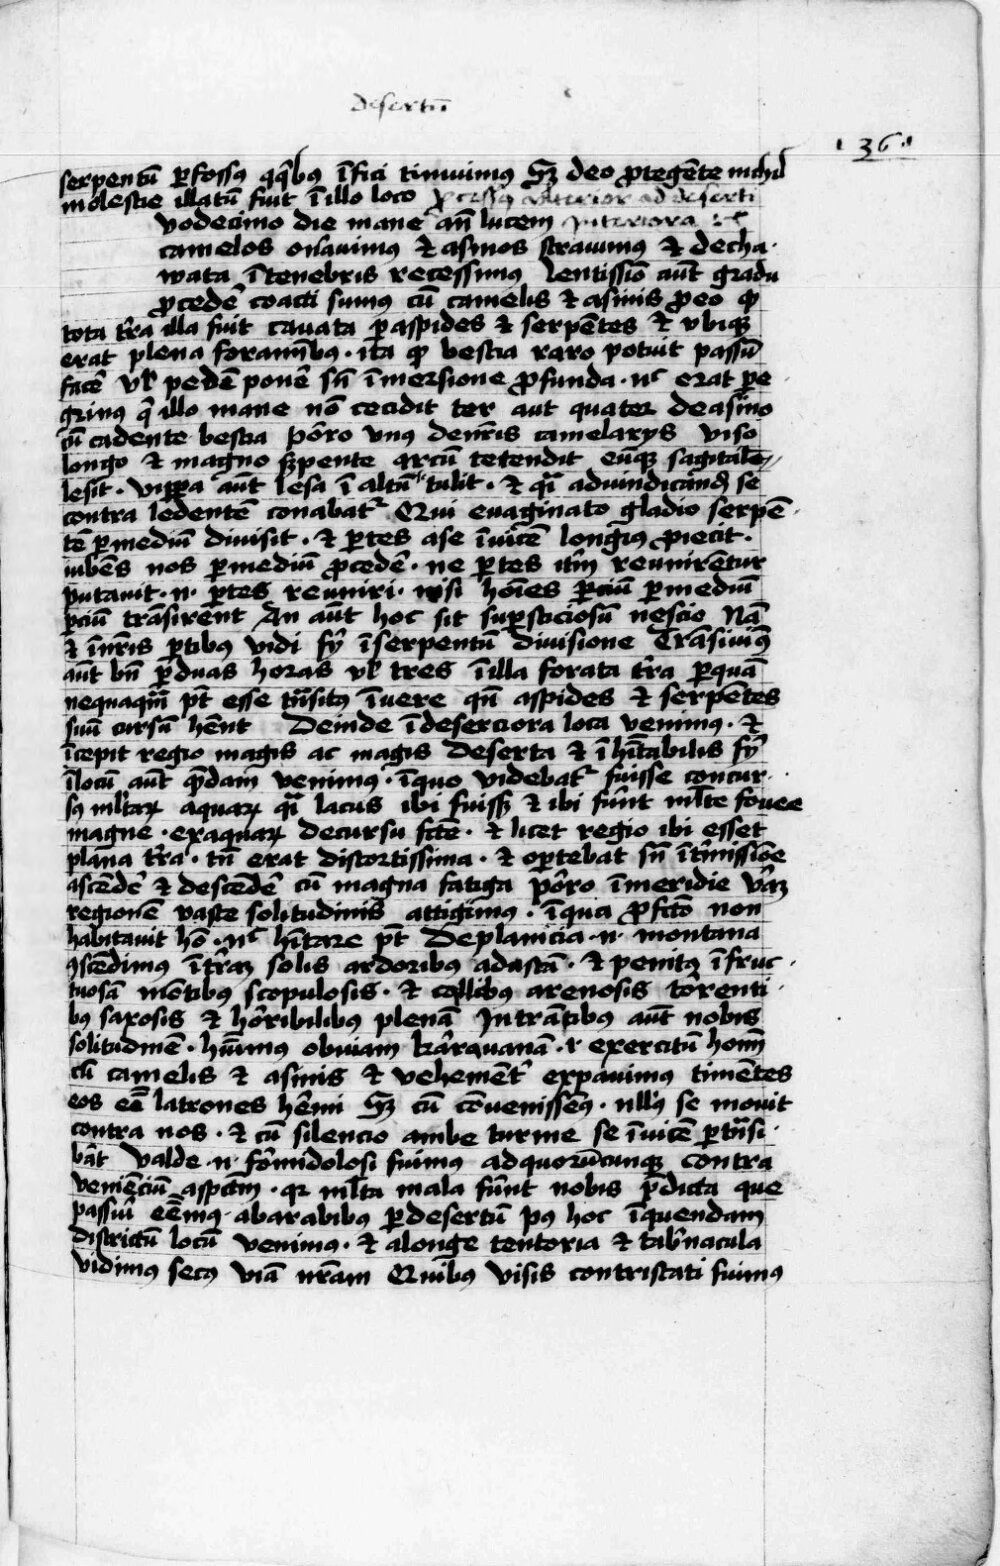 Desertū
· 36 ·
serpentū perfossus quibus īfici timuimus Sz deo protegēte nichil
molestie illatū fuit ī illo loco processus ulterior ad deserti
vodecimo die mane an̄ lucem Interiora
camelos onavimus et asinos stravimus et decha·
wata ī tenebris recessimus lentissīo aūt gradu
procedē coacti sumus cū camelis et asinis pro eo qp
tota tr̄ra illa fuit cavata per aspides et serpētes et ubiqz
erat plena foraminibus · ita qp bestia raro potuit passū
facē vl pedē ponē sn̄ īmersione profunda · nc erat pere
grinus qi illo mane nō cecidit ter aut quater de asino
cadente bestia pōro unus de nr̄is camelariis viso
longo et magno szpente arcū tetendit eūqz sagitando
lesit · vippera aūt lesa ī altū tulit · et qi ad vindicandū se
contra ledentē conabat Qui evaginato gladio serpē·
tē per mediū divisit · et pertes a se īvicē longius proiecit ·
iubēs nos per mediū procedē · ne pertes itm̄ reunirētur
putavit · n · pertes reuniri · nisi hoīes perciū per mediū
perciū trāsirent An aūt hoc sit superticiosū nescio Nā
et ī nr̄is pertibus vidi ī serpentū divisione Trāsivimus
aūt bn̄ per duas horas vl tres ī illa forata tr̄ra per quā
nequaqm̄ pt̄ esse trn̄situs ī vere qn̄ aspides et serpētes
suū cursū hēnt Deinde ī deserciora loca venimus · et
īcepit regio magis ac magis deserta et īhītabilis
ī locū aūt quēdam venimus · ī quo videbat fuisse concur·
sus multarz aquarz qi lacus ibi fuissz et ibi fūnt mlte fovee
magne · ex aquarz decursu fctē · et licet regio ibi esset
plana tr̄ra · tn̄ erat distortissima · et opertebat sn̄ īt̄missiōe
ascēdē et descēdē cū magna fatiga pōro ī meridie
regionē vaste solitudinis attigimus · ī qua profcto non
habitavit hō · nc hītare pt̄ De planicia · n · montana
ascēdimus ī tr̄raz solis ardoribus adustā · et penitus īfruc·
tuosā mōtibus scopulosis · et collibus arenosis torenti·
bus saxosis et hōribilibus plenā Intrātibus aūt nobis
solitudinē · huimus obviam kārawanā · exercitū homī
cū camelis et asinis et vehemēt expavimus timētes
eos eē latrones hēmi Sz cū cōvenissēmus · nllus se movit
contra nos · et cū silencio ambe turme se īvicē pertrn̄si·
bāt valde · n · fōmidolosi fuimus ad quorūcunqz contra
veniēciū aspctm · qr mlta mala fūnt nobis predicta que
passuri eēmus · ab arabibus per desertū pus hoc ī quendam
districtū locū venimus · et a longe tentoria et tabnacula
vidimus secus viā nr̄am Quibus visis contristati fuimus